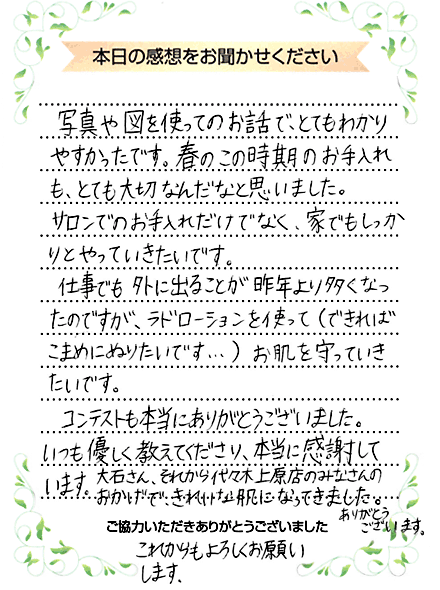 本日の感想をお聞かせください
写真や図を使ってのお話で、とてもわかり
やすかったです。春のこの時期のお手入れ
も、とても大切なんだなと思いました。
サロンでのお手入れだけでなく、家でもしっか
りとやっていきたいです。
仕事でも外に出ることが昨年より多くなっ
たのですが、ラドローションを使って(できれば
こまめにぬりたいです…)お肌を守っていき
たいです。
コンテストも本当にありがとうございました。
いつも優しく教えてくださり、本当に感謝して
います。大石さん、それから代々木上原店のみなさんの
おかげで、きれいな肌になってきました。
ありがとう
ございます。
ご協力いただきありがとうございました
これからもよろしくお願い
します。